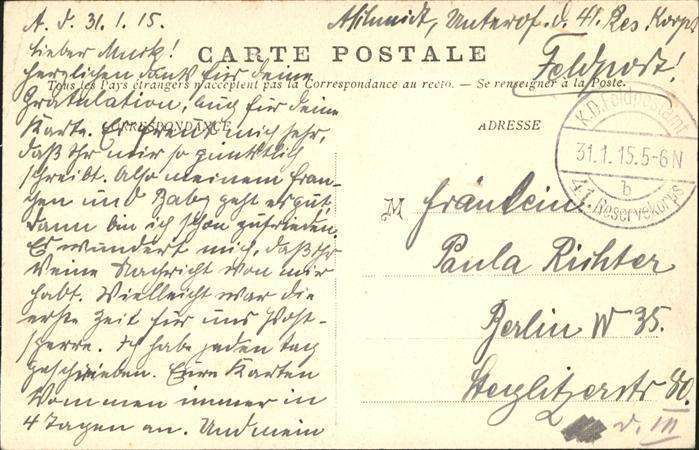 A. d. 31.1.15.
ASchmidt, Unterof. d. 41. Res. Korps
Feldpost!
CARTE POSTALE
Tous les Pays étrangers n'acceptent pas la Correspondance au recto. — Se renseigner à la Poste.
CORRESPONDANCE
ADRESSE
Lieber Murk!
Herzlichen Dank für deine
Gratulation, auch für deine
Karte. Es freut mich sehr,
daß Ihr mir so pünktlich
schreibt. Also meinem Frau-
chen und Baby geht es gut,
dann bin ich schon zufrieden.
Es wundert mich, daß Ihr
keine Nachricht von mir
habt. Vielleicht war die
erste Zeit für uns Post-
sperre. Ich habe jeden Tag
geschrieben. Eure Karten
kommen immer in
4 Tagen an. Und mein
K.D. Feldpostamt
31.1.15.5-6N
b
41. Reservekorps
M
Fräulein
Paula Richter
Berlin W 35.
Steglitzerstr 80.
v. III